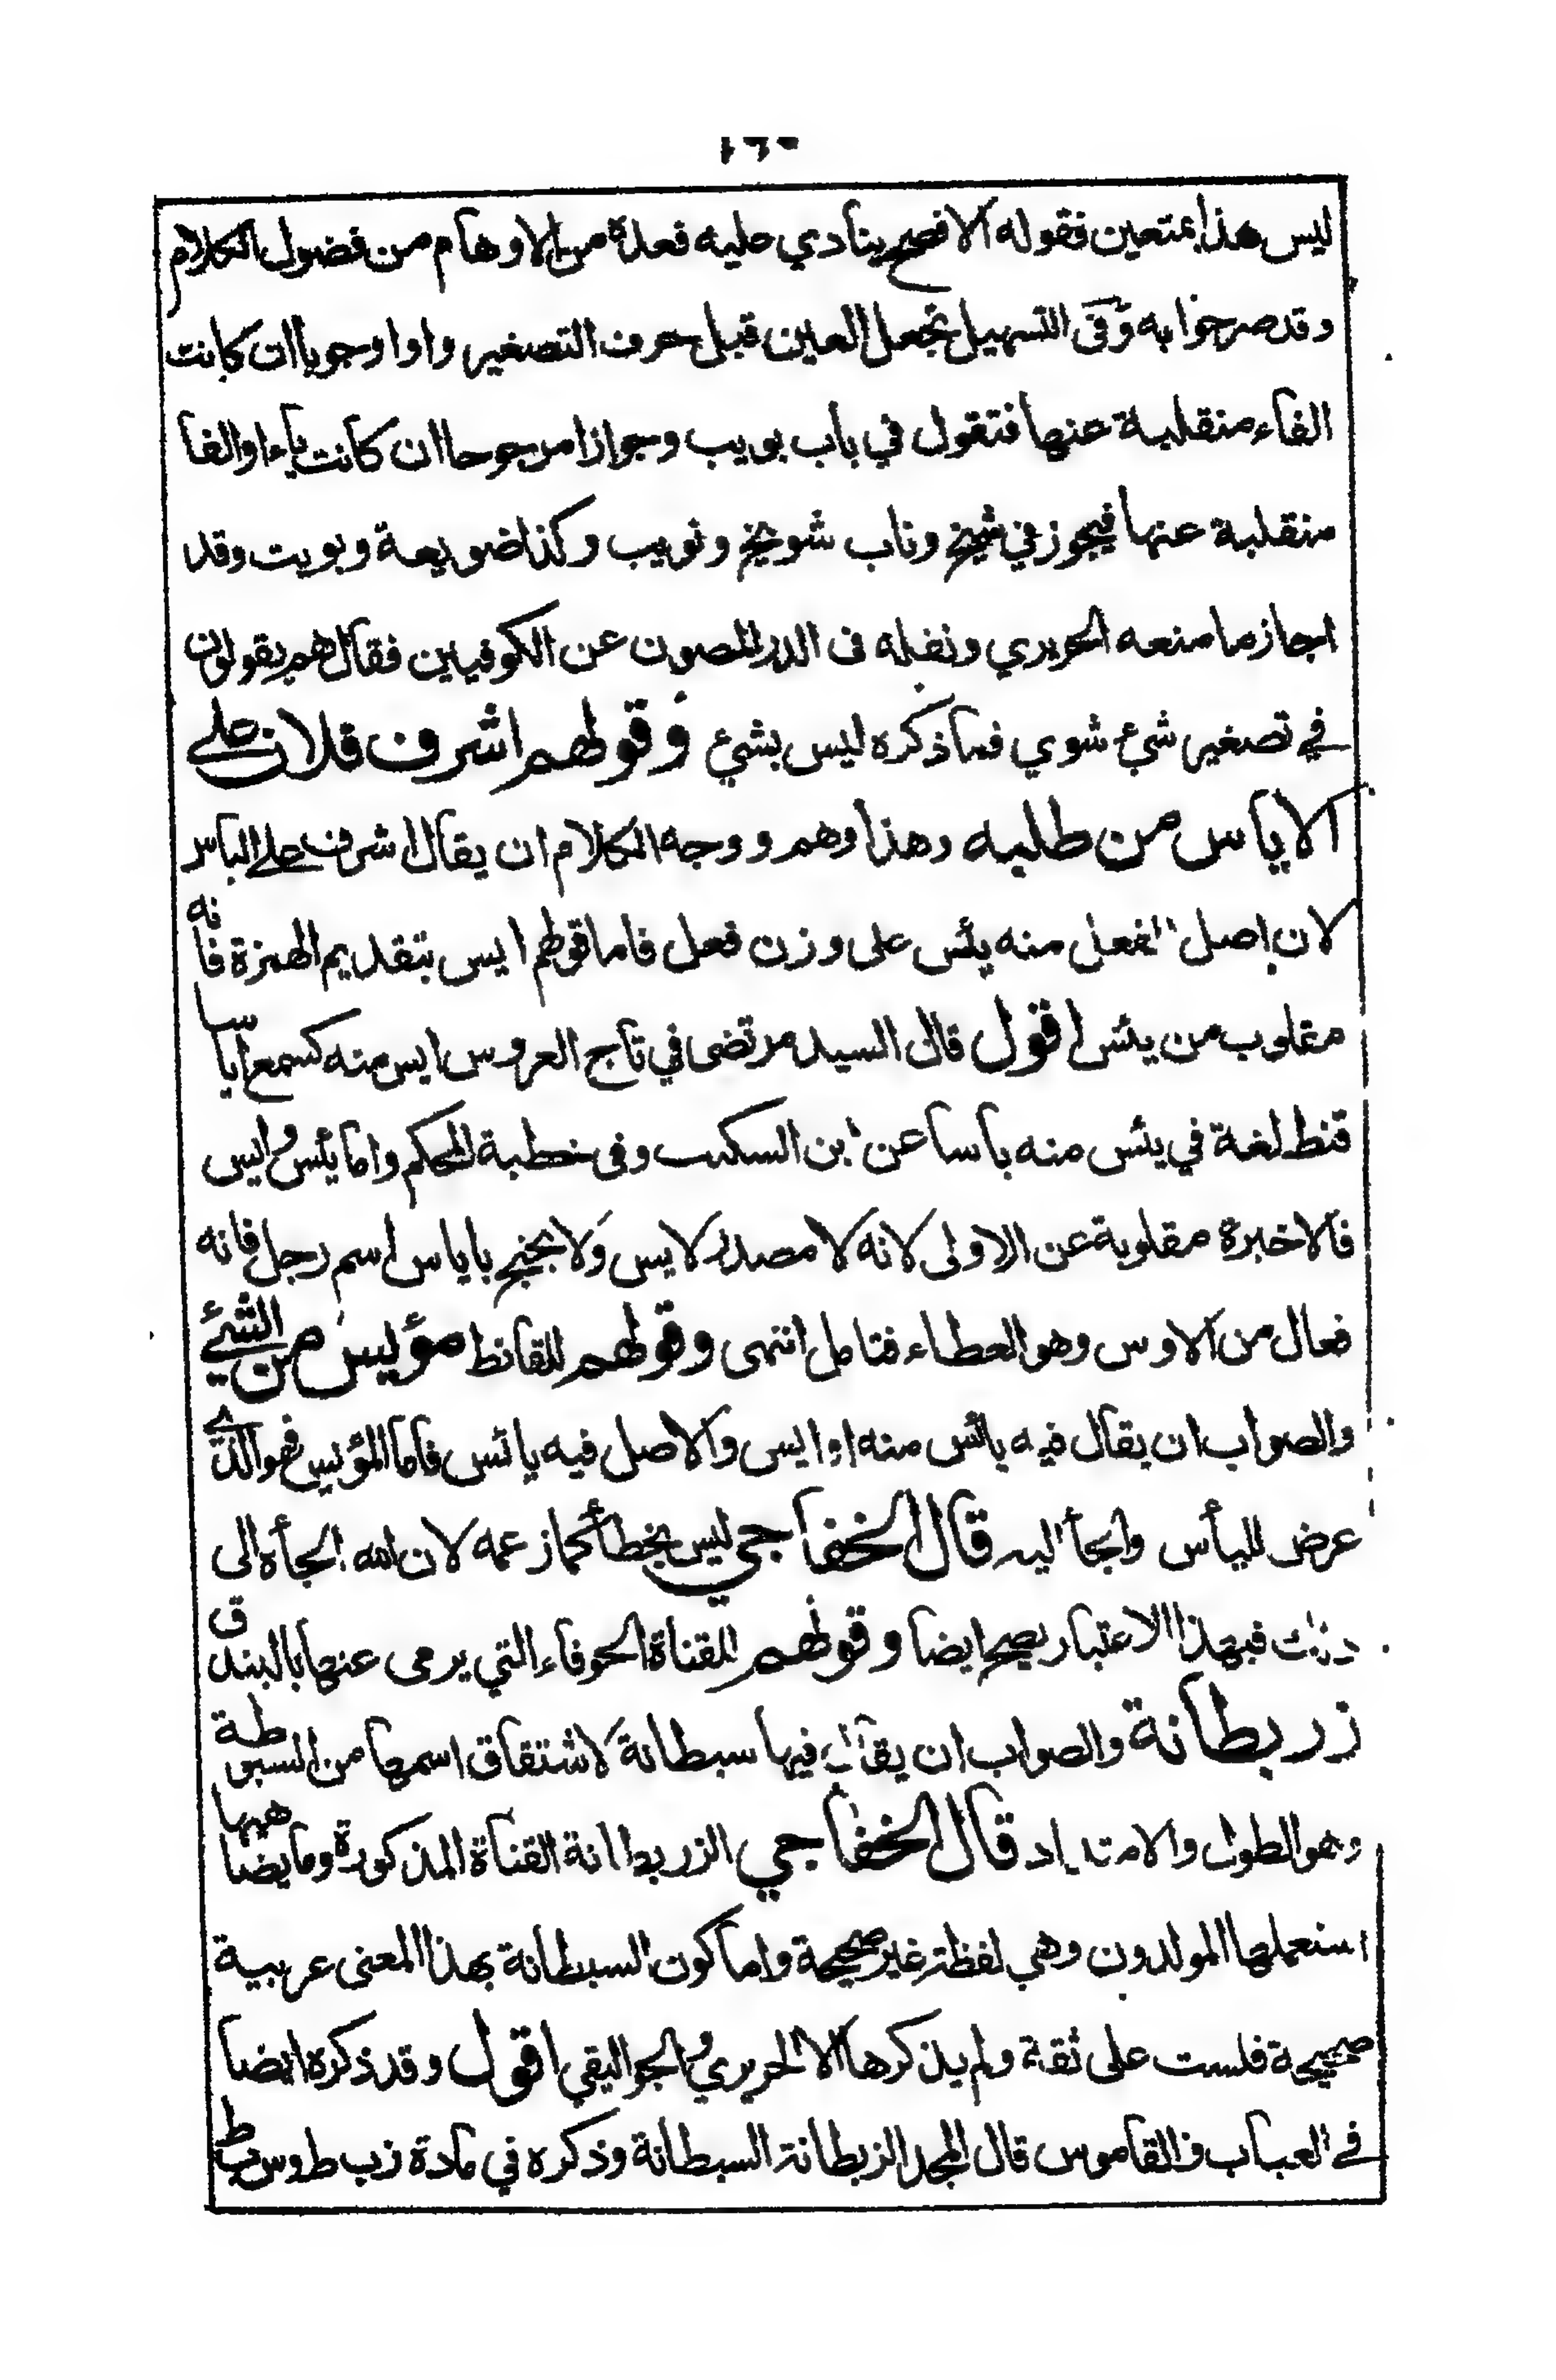 ليس هذا بمتعين فقوله الافصح ينادي عليه فعدة من الاوهام من فضول الكلام
وقد صرحوا به وفى التسهيل تجعل العين قبل حرف التصغير واوا وجوبا ان كانت
الفاء منقلبة عنها فتقول في باب بويب وجوازا مرجوحا ان كانت ياء او الفا
منقلبة عنها فيجوز في شيخ وناب شويخ ونويب وكذا ضويعة وبويت وقد
اجاز ما منعه الحريري ونقله فى الدر المصون عن الكوفيين فقال هم يقولون
في تصغير شئ شوي فما ذكره ليس بشئ وقولهم اشرف فلان على
الاياس من طلبه وهذا وهم ووجه الكلام ان يقال اشرف على الياس
لان اصل الفعل منه يئس على وزن فعل فاما قولهم ايس بتقديم الهمزة فانه
مقلوب من يئس اقول قال السيد مرتضى في تاج العروس ايس منه كسمع اياسا
قنط لغة في يئس منه ياسا عن ابن السكيت وفى خطبة المحكم واما يئس وايس
فالاخيرة مقلوبة عن الاولى لانه لا مصدر لايس ولا يحتج باياس اسم رجل فانه
فعال من الاوس وهو العطاء فتامل انتهى وقولهم للقانط مؤيس من الشئ
والصواب ان يقال فيه يائس منه او ايس والاصل فيه يائس فاما المؤيس فهو الذي
عرض لليأس والجأ اليه قال الخفاجي ليس بخطأ كما زعمه لان الله الجأه الى
ذلك فبهذا الاعتبار يصح ايضا وقولهم للقناة الجوفاء التي يرمى عنها بالبندق
زربطانة والصواب ان يقال فيها سبطانة لاشتقاق اسمها من السبوطة
وهو الطول والامتداد قال الخفاجي الزربطانة القناة المذكورة وما يضاهيها
استعملها المولدون وهي لفظة غير صحيحة واما كون السبطانة بهذا المعنى عربية
صحيحة فلست على ثقة ولم يذكرها الا الحريري والجواليقي اقول وقد ذكره ايضا
في العباب والقاموس قال المجد الزبطانة السبطانة وذكره في مادة زب ط وس ب ط